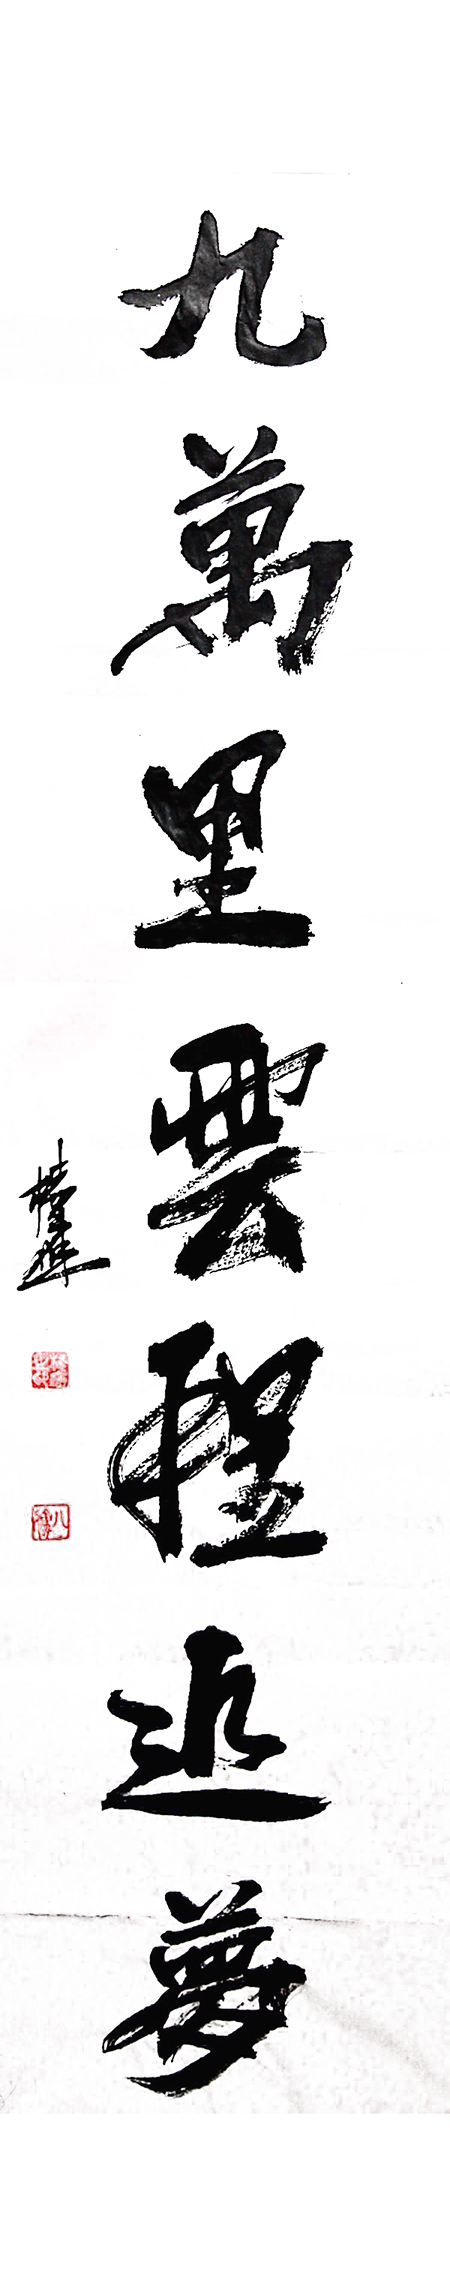 九萬里雲程追夢